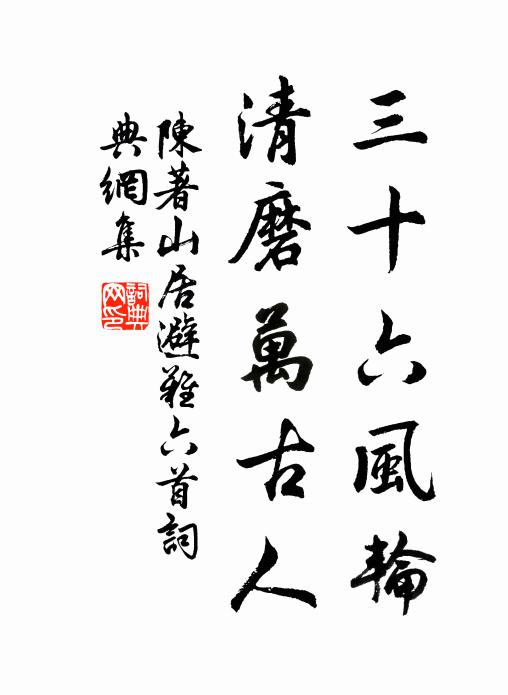 三十六風輪
清磨萬古人
陳著山居避難六首詞
典網集
詞典網印